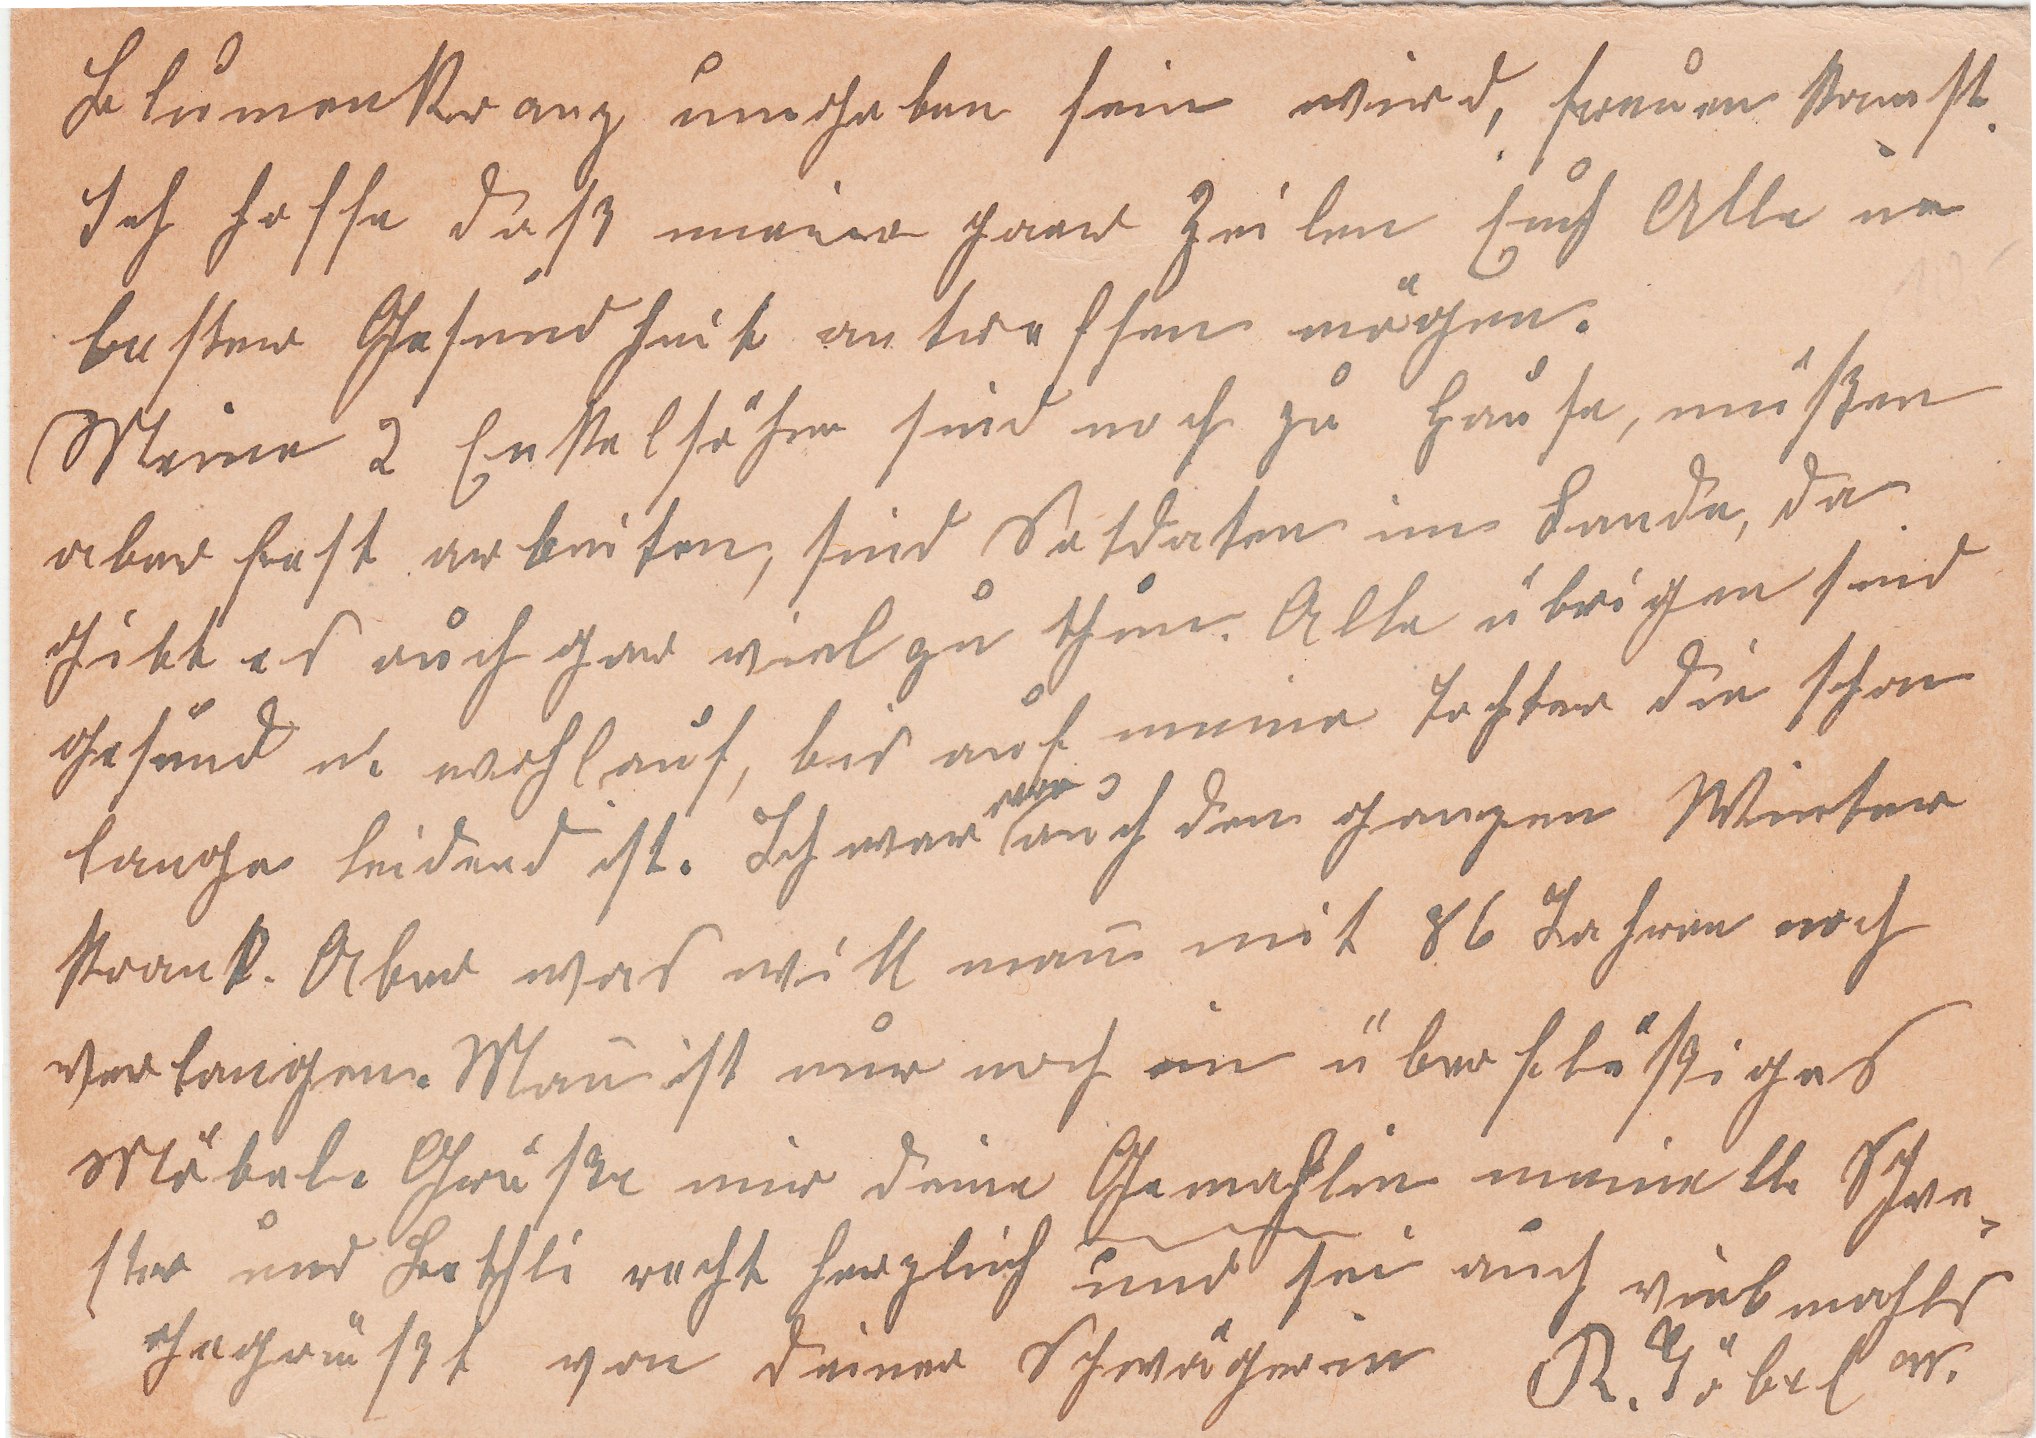 Blumenkranz umgeben sein wird, freuen kannst.
Ich hoffe daß meine paar Zeilen Euch Alle in
bester Gesundheit antreffen mögen.
Meine 2 Enkelsöhne sind noch zu Hause, müßen
aber fest arbeiten, sind Soldaten im Lande, da
gibt es auch gar viel zu thun. Alle übrigen sind
gesund u. wohlauf, bis auf meine Tochter die schon
lange leidend ist. Ich war auch den ganzen Winter
krank. Aber was will man mit 86 Jahren noch
verlangen. Man ist nur noch ein überflüßiges
Möbel. Grüße mir deine Gemahlin meine lb. Schwe-
ster und Bethli recht herzlich und sei auch vielmahls
gegrüßt von deiner Schwägerin R. Göbel